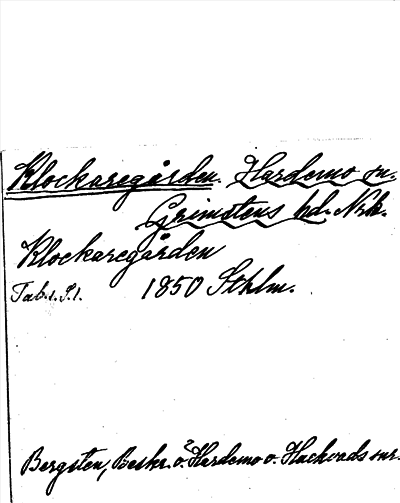 Klockaregården. Hardemo sn.
Grimstens hd. Nrk.
Klockaregården
Tab. 1. S. 1. 1850 Sthlm.
Bergsten, Beskr. ö. Hardemo o. Hackvads snr.